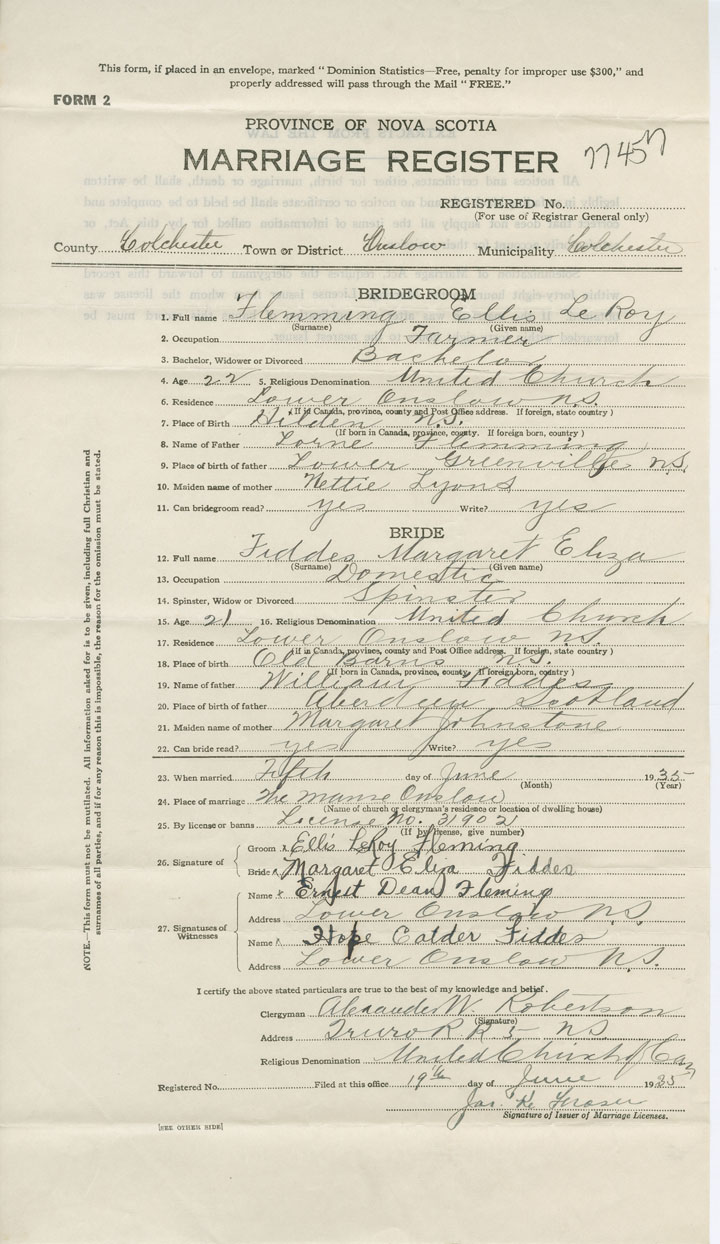 This form, if placed in an envelope, marked "Dominion Statistics—Free, penalty for improper use $300," and
properly addressed will pass through the Mail "FREE."
FORM 2
PROVINCE OF NOVA SCOTIA
MARRIAGE REGISTER 77457
REGISTERED No.
(For use of Registrar General only)
County Colchester Town or District Onslow Municipality Colchester
BRIDEGROOM
1. Full name Flemming Ellis Le Roy
(Surname) (Given name)
2. Occupation Farmer
3. Bachelor, Widower or Divorced Bachelor
4. Age 22 5. Religious Denomination United Church
6. Residence Lower Onslow N.S.
(If in Canada, province, county and Post Office address. If foreign, state country)
7. Place of Birth Hilden N.S.
(If born in Canada, province, county. If foreign born, country)
8. Name of Father Lorne Flemming
9. Place of birth of father Lower Greenville N.S.
10. Maiden name of mother Nettie Lyons
11. Can bridegroom read? yes Write? yes
BRIDE
12. Full name Fiddes Margaret Eliza
(Surname) (Given name)
13. Occupation Domestic
14. Spinster, Widow or Divorced Spinster
15. Age 21 16. Religious Denomination United Church
17. Residence Lower Onslow N.S.
(if in Canada, province, county and Post Office address. If foreign, state country)
18. Place of birth Old Barns N.S.
(If born in Canada, province, county. If foreign born, country)
19. Name of father William Fiddes
20. Place of birth of father Aberdeen Scotland
21. Maiden name of mother Margaret Johnstone
22. Can bride read? yes Write? yes
23. When married Fifth day of June 1935
(Month) (Year)
24. Place of marriage The manse Onslow
(Name of church or clergyman's residence or location of dwelling house)
25. By license or banns License No. 31902
(If by license, give number)
26. Signature of Groom x Ellis LeRoy Fleming
Bride x Margaret Eliza Fiddes
27. Signatures of Witnesses Name x Ernest Dean Fleming
Address Lower Onslow N.S.
Name x Hope Calder Fiddes
Address Lower Onslow N.S.
I certify the above stated particulars are true to the best of my knowledge and belief.
Clergyman Alexander W. Robertson
(Signature)
Address Truro R R 5 N.S.
Religious Denomination United Church of Can
Registered No. Filed at this office 19th day of June 1935
Jas. K. Fraser
Signature of Issuer of Marriage Licenses.
[SEE OTHER SIDE]
NOTE.—This form must not be mutilated. All information asked for is to be given, including full Christian and
surnames of all parties, and if for any reason this is impossible, the reason for the omission must be stated.